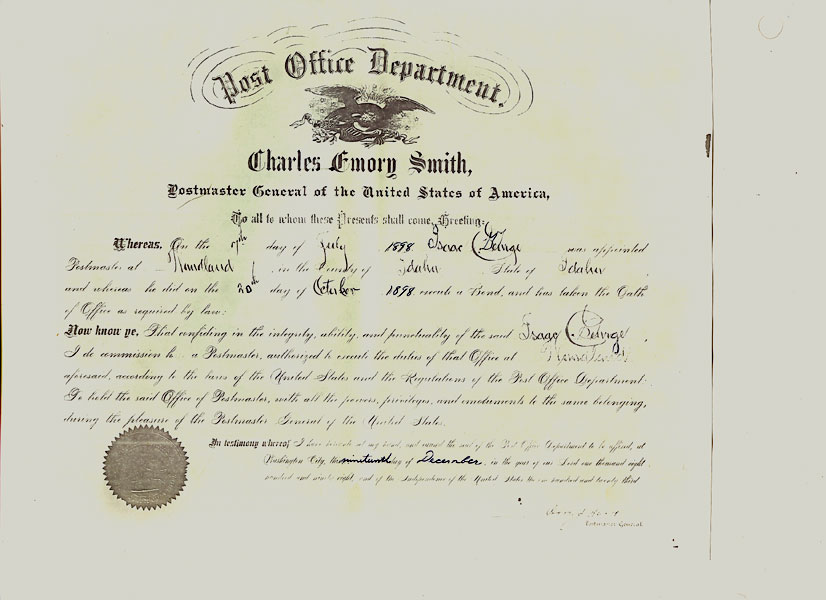 Post Office Department.
Charles Emory Smith,
Postmaster General of the United States of America,
To all to whom these Presents shall come, Greeting:
Whereas, On the 7th day of July 1898 Isaac C George was appointed
Postmaster at in the County of Idaho State of Idaho
and whereas he did on the 20th day of October 1898, execute a Bond, and has taken the Oath
of Office as required by law:
Now know ye, That confiding in the integrity, ability, and punctuality of the said Isaac C. George
I do commission h a Postmaster, authorized to execute the duties of that Office at
aforesaid, according to the laws of the United States and the Regulations of the Post Office Department:
To hold the said Office of Postmaster, with all the powers, privileges, and emoluments to the same belonging,
during the pleasure of the Postmaster General of the United States.
In testimony whereof I have hereunto set my hand, and caused the seal of the Post Office Department to be affixed, at
Washington City, the nineteenth day of December, in the year of our Lord one thousand eight
hundred and ninety eight, and of the Independence of the United States the one hundred and twenty third
Postmaster General